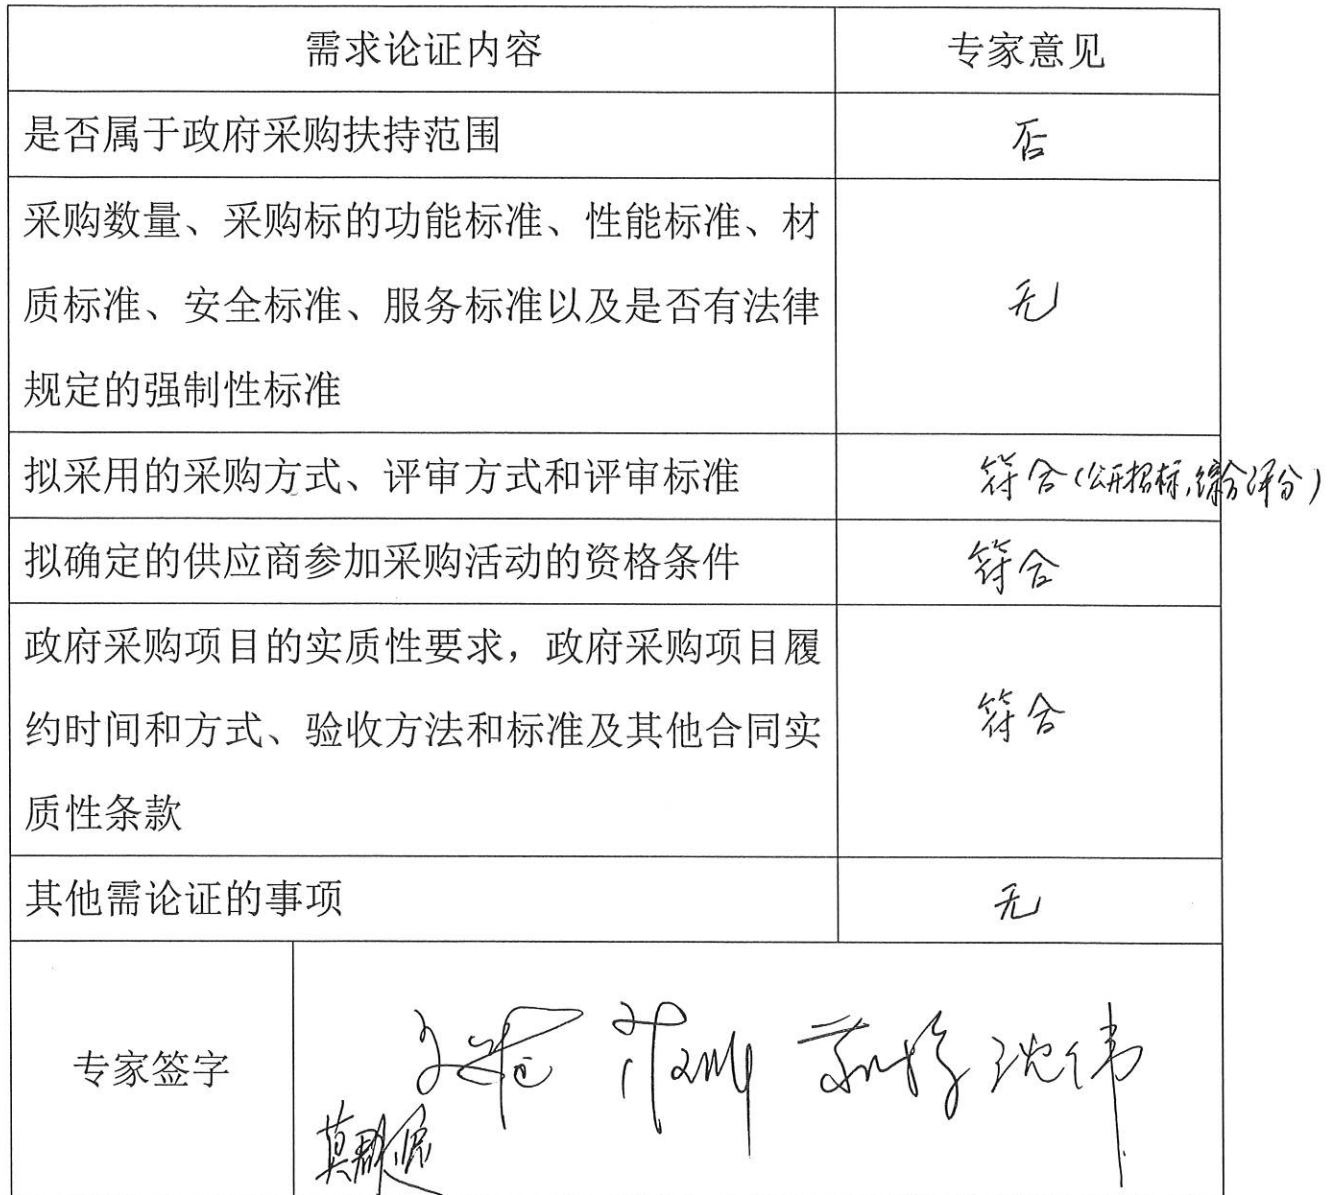 需求论证内容 专家意见
是否属于政府采购扶持范围 否
采购数量、采购标的功能标准、性能标准、材
质标准、安全标准、服务标准以及是否有法律 无
规定的强制性标准
拟采用的采购方式、评审方式和评审标准 符合(公开招标,综合评分)
拟确定的供应商参加采购活动的资格条件 符合
政府采购项目的实质性要求，政府采购项目履
约时间和方式、验收方法和标准及其他合同实 符合
质性条款
其他需论证的事项 无
专家签字 沈伟